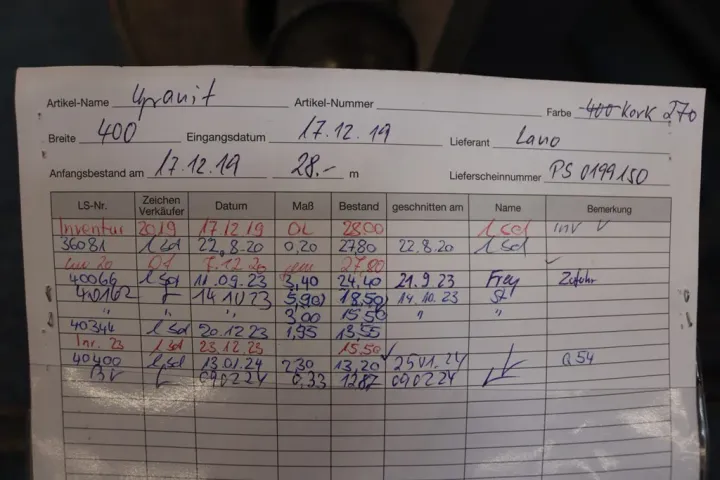 Artikel-Name Granit Artikel-Nummer Farbe 400 Kork 270
Breite 400 Eingangsdatum 17.12.19 Lieferant Lano
Anfangsbestand am 17.12.19 28.- m Lieferscheinnummer PS 0199150
LS-Nr. Zeichen Verkäufer Datum Maß Bestand geschnitten am Name Bemerkung
Inventur 2019 17.12.19 28.00 INV
36081 22.8.20 0,20 27.80 22.8.20
7.12.20 27.80
40066 11.09.23 3,40 24.40 21.9.23 Frey Zufuhr
14.10.23 5,90 18,50 14.10.23
" " " 3,00 15,50 " "
40344 20.12.23 1,95 13.55
Inv. 23 23.12.23 15.50
40400 13.01.24 2,30 13,20 25.01.24
BV 09.02.24 0,33 12.87 09.02.24